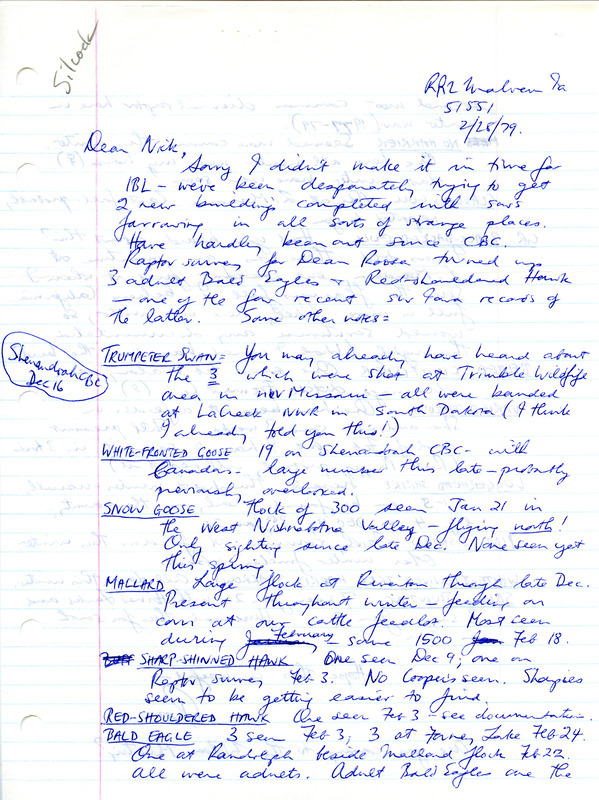 Silcock
RR2 Malvern Ia
51551
2/28/79.
Dear Nick,
Sorry I didn't make it in time for
IBL – we've been desparately trying to get
2 new buildings completed with sows
farrowing in all sorts of strange places.
Have hardly been out since CBC.
Raptor survey for Dean Roosa turned up
3 adult Bald Eagles + Red-shouldered Hawk
– one of the few recent sw Iowa records of
the latter. Some other notes =
Shenandoah CBC
Dec 16
TRUMPETER SWAN = You may already have heard about
the 3 which were shot at Trimble Wildlife
area in nw Missouri – all were banded
at LaCreek NWR in South Dakota (I think
I already told you this!)
WHITE-FRONTED GOOSE 19 on Shenandoah CBC – with
Canadas – large number this late – probably
previously overlooked.
SNOW GOOSE flock of 300 seen Jan 21 in
the West Nishnabotna Valley – flying north!
Only sighting since late Dec. None seen yet
this spring.
MALLARD Large flock at Riverton through late Dec.
Present throughout winter – feeding on
corn at our cattle feedlot. Most seen
during February – some 1500 Feb 18.
SHARP-SHINNED HAWK One seen Dec 9, one on
Raptor survey Feb 3. No Cooper's seen. Sharpies
seem to be getting easier to find.
RED-SHOULDERED HAWK One seen Feb 3 – see documentation.
BALD EAGLE 3 seen Feb 3, 3 at Forney Lake Feb 24.
One at Randolph beside Mallard flock Feb 22.
All were adults. Adult Bald Eagles are the